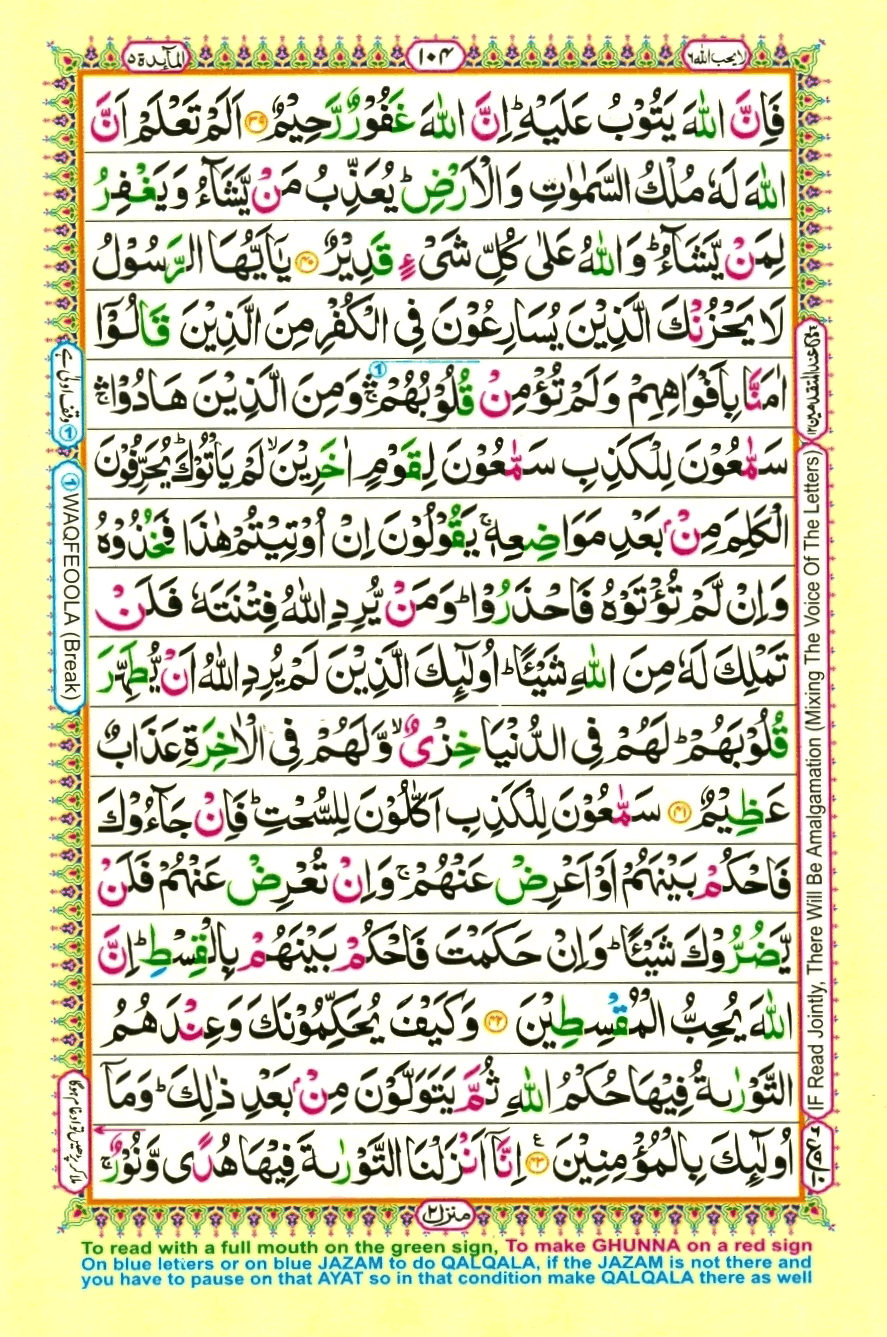 المآىدة ۵
۱۰۴
لا يحب الله ۶
فَاِنَّ اللّٰهَ يَتُوْبُ عَلَيْهِ ؕ اِنَّ اللّٰهَ غَفُوْرٌ رَّحِيْمٌ ۳۹ اَلَمْ تَعْلَمْ اَنَّ
اللّٰهَ لَهٗ مُلْكُ السَّمٰوٰتِ وَالْاَرْضِ ؕ يُعَذِّبُ مَنْ يَّشَآءُ وَيَغْفِرُ
لِمَنْ يَّشَآءُ ؕ وَاللّٰهُ عَلٰى كُلِّ شَىْءٍ قَدِيْرٌ ۴۰ يٰۤاَيُّهَا الرَّسُوْلُ
لَا يَحْزُنْكَ الَّذِيْنَ يُسَارِعُوْنَ فِى الْكُفْرِ مِنَ الَّذِيْنَ قَالُوْۤا
اٰمَنَّا بِاَفْوَاهِهِمْ وَلَمْ تُؤْمِنْ قُلُوْبُهُمْ ۛۚ وَمِنَ الَّذِيْنَ هَادُوْا ۛۚ
سَمّٰعُوْنَ لِلْكَذِبِ سَمّٰعُوْنَ لِقَوْمٍ اٰخَرِيْنَ ۙ لَمْ يَاْتُوْكَ ؕ يُحَرِّفُوْنَ
الْكَلِمَ مِنْۢ بَعْدِ مَوَاضِعِهٖ ۚ يَقُوْلُوْنَ اِنْ اُوْتِيْتُمْ هٰذَا فَخُذُوْهُ
وَاِنْ لَّمْ تُؤْتَوْهُ فَاحْذَرُوْا ؕ وَمَنْ يُّرِدِ اللّٰهُ فِتْنَتَهٗ فَلَنْ
تَمْلِكَ لَهٗ مِنَ اللّٰهِ شَيْـًٔا ؕ اُولٰٓئِكَ الَّذِيْنَ لَمْ يُرِدِ اللّٰهُ اَنْ يُّطَهِّرَ
قُلُوْبَهُمْ ؕ لَهُمْ فِى الدُّنْيَا خِزْىٌ ۙ وَّلَهُمْ فِى الْاٰخِرَةِ عَذَابٌ
عَظِيْمٌ ۴۱ سَمّٰعُوْنَ لِلْكَذِبِ اَكّٰلُوْنَ لِلسُّحْتِ ؕ فَاِنْ جَآءُوْكَ
فَاحْكُمْ بَيْنَهُمْ اَوْ اَعْرِضْ عَنْهُمْ ۚ وَاِنْ تُعْرِضْ عَنْهُمْ فَلَنْ
يَّضُرُّوْكَ شَيْـًٔا ؕ وَاِنْ حَكَمْتَ فَاحْكُمْ بَيْنَهُمْ بِالْقِسْطِ ؕ اِنَّ
اللّٰهَ يُحِبُّ الْمُقْسِطِيْنَ ۴۲ وَكَيْفَ يُحَكِّمُوْنَكَ وَعِنْدَهُمُ
التَّوْرٰىةُ فِيْهَا حُكْمُ اللّٰهِ ثُمَّ يَتَوَلَّوْنَ مِنْۢ بَعْدِ ذٰلِكَ ؕ وَمَاۤ
اُولٰٓئِكَ بِالْمُؤْمِنِيْنَ ۴۳ اِنَّاۤ اَنْزَلْنَا التَّوْرٰىةَ فِيْهَا هُدًى وَّنُوْرٌ ۚ
منزل ۲
وقف اولىٰ ہے ①
① WAQFEOOLA (Break)
ملا کر پڑھیں تو ادغام ہوگا
IF Read Jointly, There Will Be Amalgamation (Mixing The Voice Of The Letters)
To read with a full mouth on the green sign, To make GHUNNA on a red sign
On blue letters or on blue JAZAM to do QALQALA, if the JAZAM is not there and
you have to pause on that AYAT so in that condition make QALQALA there as well